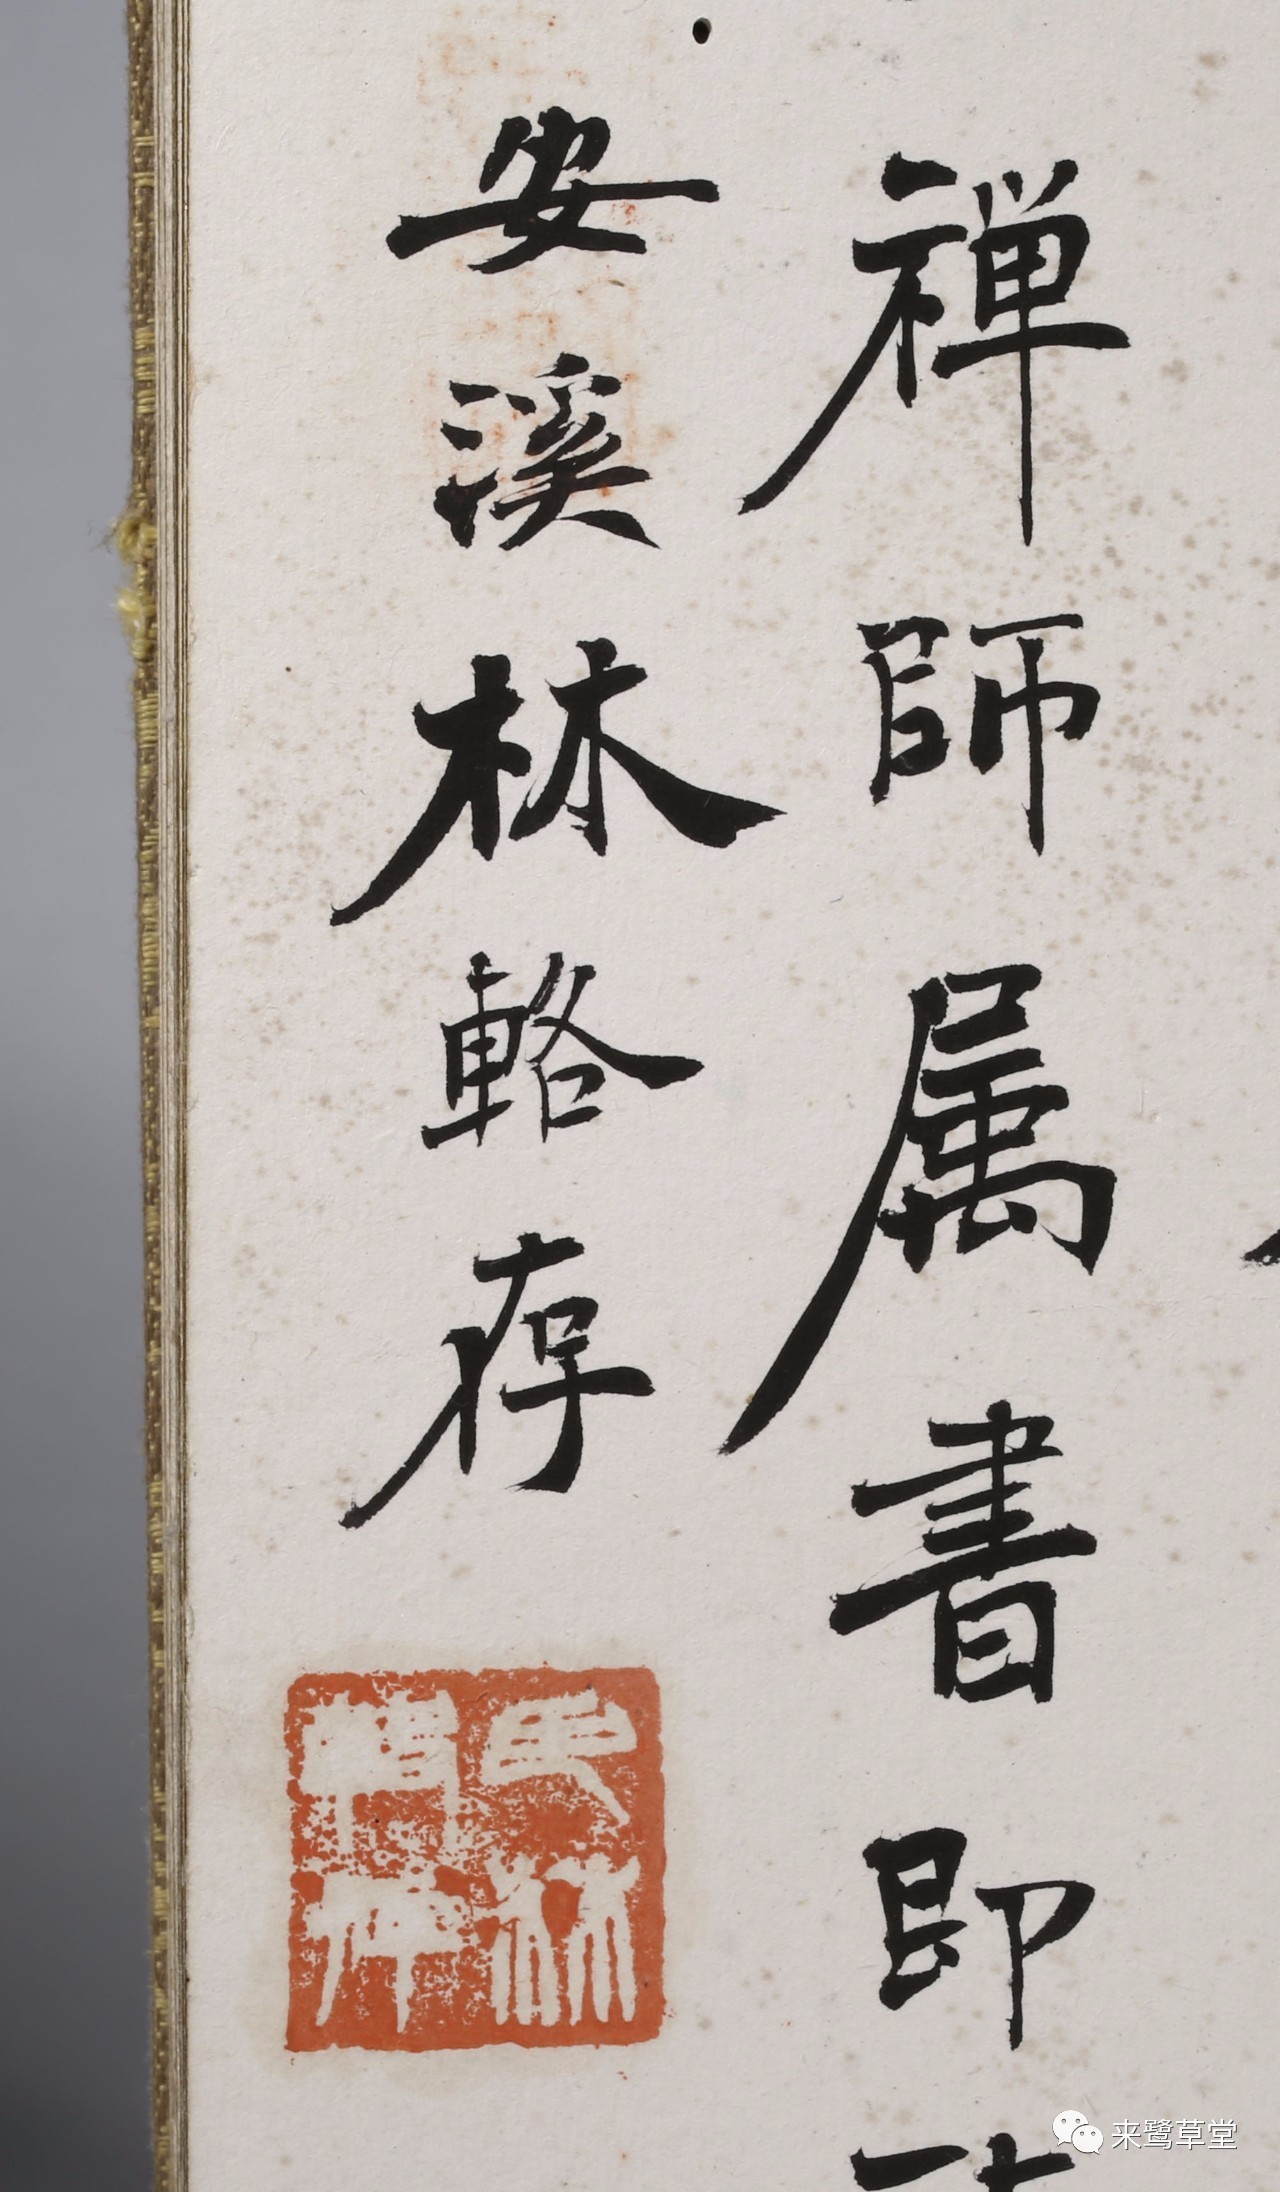 禅師属書即
安溪林輅存
来鹭草堂